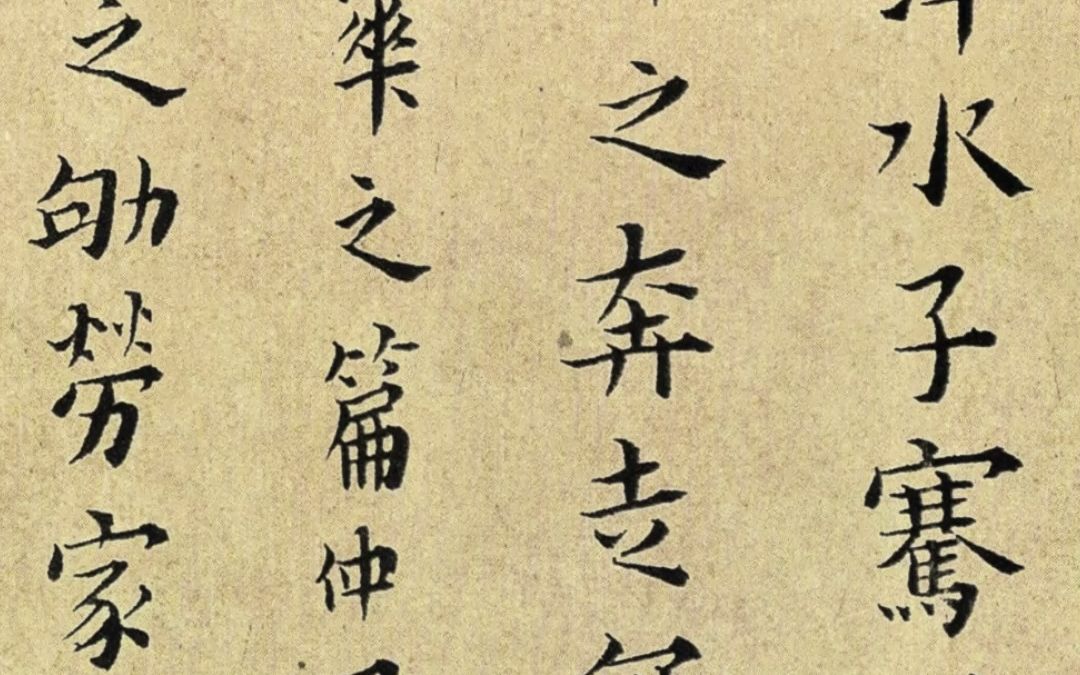 水子騫
之奔走
華之篇仲
之劬勞家